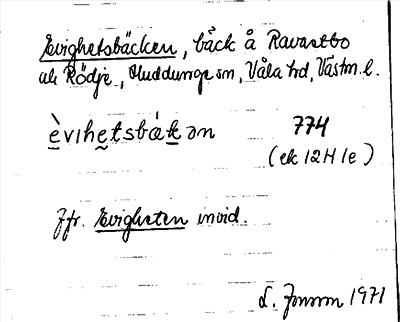 Evighetsbäcken, bäck å Ravastbo
ak Rödje, Huddunge sn, Våla hd, Västm. l.
èvıhetsbák ən 774
(ek 12H 1e)
Jfr. Evigheten invid.
1971